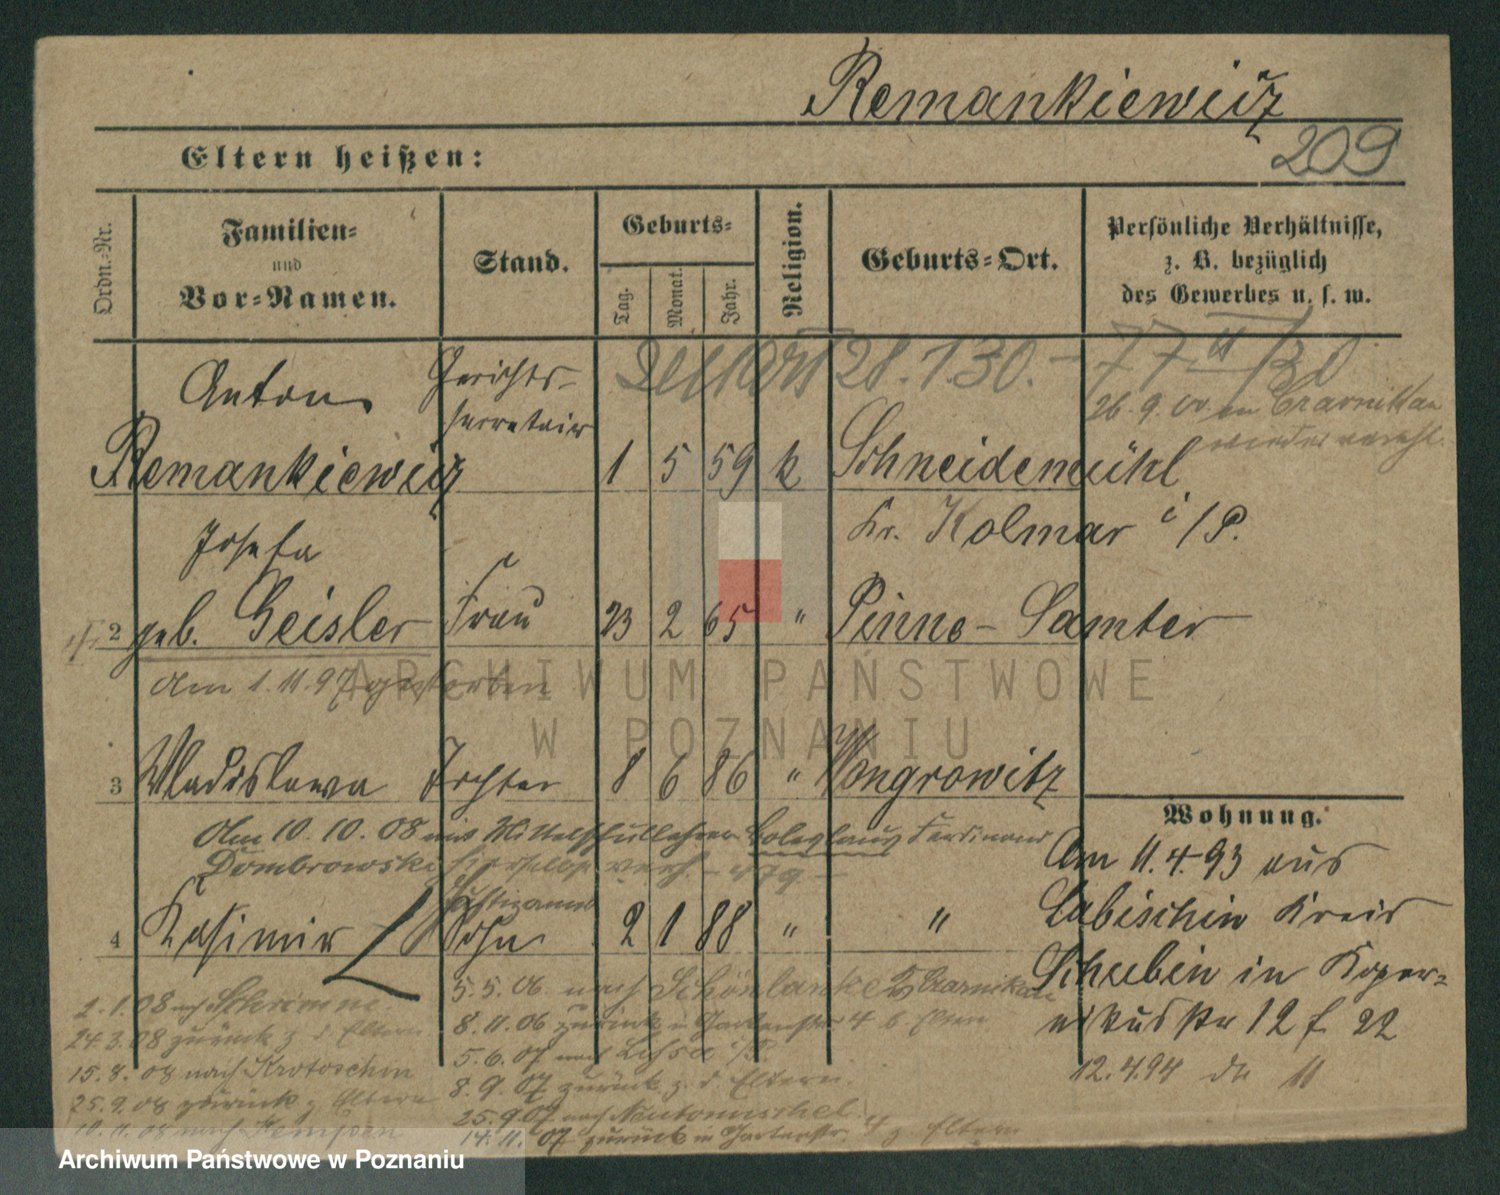 Remankiewicz
209
Eltern heißen:
Ordn.-Nr.
Familien-
und
Vor-Namen.
Stand.
Geburts-
Tag.
Monat.
Jahr.
Religion.
Geburts-Ort.
Persönliche Verhältnisse,
z. B. bezüglich
des Gewerbes u. s. w.
28.1.30.
Anton Gerichts-
secretair
26.9.00 in Czarnikau
wieder verehl.
Remankiewicz 1 5 59 k Schneidemühl
Kr. Kolmar i/P.
Josefa
2 geb. Geisler Frau 23 2 65 " Pinne - Samter
Am 1.11.97 gestorben
3 Wladislawa Tochter 8 6 86 " Wongrowitz
Am 10.10.08 mit Mittelschullehrer Boleslaus Ferdinand
Dombrowski hierselbst verh. - 479. -
4 Kasimir Sohn 2 1 88 " "
Wohnung.
Am 11.4.93 aus
Labischin Kreis
Schubin in Koper-
nikusstr 12 f 22
12.4.94 do 11
5.5.06. nach Schönlanke Czarnikau
8.11.06 zurück in Gartenstr 4 b. Eltern
5.6.07 nach Lissa i/P.
8.9.07 zurück z. d. Eltern.
25.9.07 nach Neutomischel
14.11.07 zurück in Gartenstr. 4 z Eltern
2.1.08 nach Schrimm
24.3.08 zurück z d Eltern
15.8.08 nach Krotoschin
25.9.08 zurück z Eltern
10.11.08 nach Kempen
ARCHIWUM PAŃSTWOWE
W POZNANIU
Archiwum Państwowe w Poznaniu